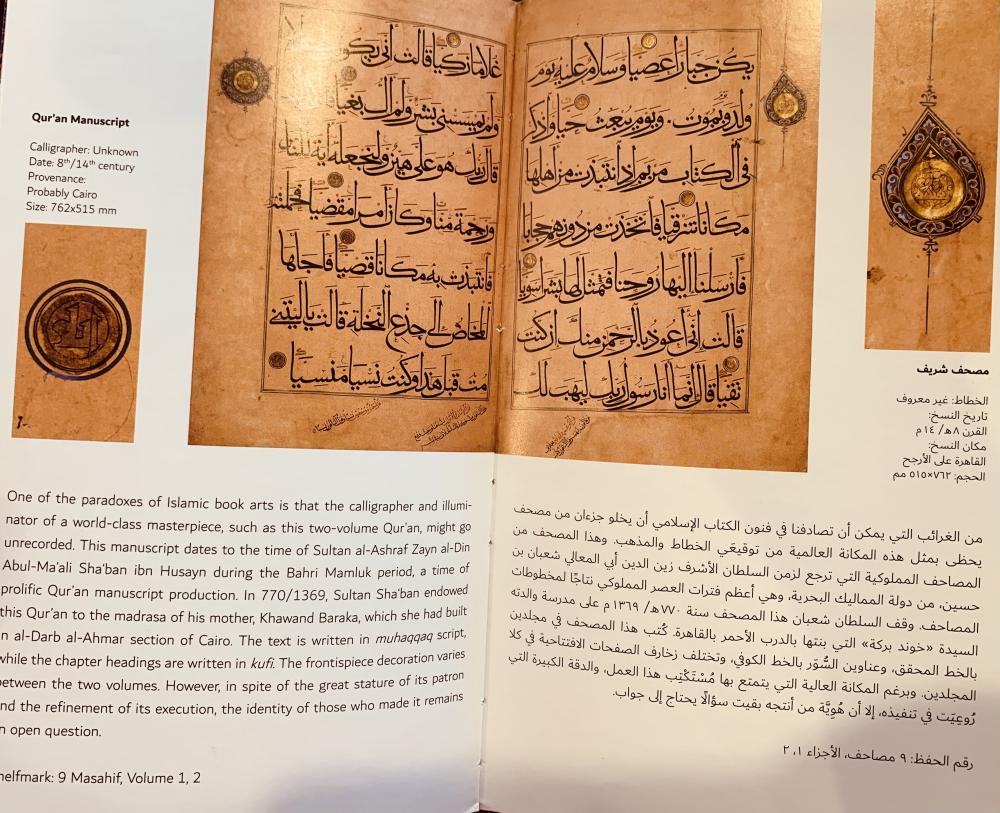 Qur'an Manuscript
Calligrapher: Unknown
Date: 8th/14th century
Provenance:
Probably Cairo
Size: 762x515 mm
يكن جبارا عصيا وسلام عليه يوم
ولد ويوم يموت ويوم يبعث حيا واذكر
في الكتاب مريم اذ انتبذت من اهلها
مكانا شرقيا فاتخذت من دونهم حجابا
فارسلنا اليها روحنا فتمثل لها بشرا سويا
قالت اني اعوذ بالرحمن منك ان كنت
تقيا قال انما انا رسول ربك ليهب لك
غلاما زكيا قالت انى
ولم يمسسني بشر ولم اك بغيا
قال ربك هو علي هين ولنجعله اية للناس
ورحمة منا وكان امرا مقضيا فحملته
فانتبذت به مكانا قصيا فاجاها
المخاض الى جذع النخلة قالت ياليتني
مت قبل هذا وكنت نسيا منسيا
مصحف شريف
الخطاط: غير معروف
تاريخ النسخ:
القرن ٨هـ/ ١٤ م
مكان النسخ:
القاهرة على الأرجح
الحجم: ٧٦٢×٥١٥ مم
One of the paradoxes of Islamic book arts is that the calligrapher and illumi-
nator of a world-class masterpiece, such as this two-volume Qur'an, might go
unrecorded. This manuscript dates to the time of Sultan al-Ashraf Zayn al-Din
Abul-Ma'ali Sha'ban ibn Husayn during the Bahri Mamluk period, a time of
prolific Qur'an manuscript production. In 770/1369, Sultan Sha'ban endowed
this Qur'an to the madrasa of his mother, Khawand Baraka, which she had built
n al-Darb al-Ahmar section of Cairo. The text is written in muhaqqaq script,
while the chapter headings are written in kufi. The frontispiece decoration varies
between the two volumes. However, in spite of the great stature of its patron
nd the refinement of its execution, the identity of those who made it remains
n open question.
helfmark: 9 Masahif, Volume 1, 2
من الغرائب التي يمكن أن تصادفنا في فنون الكتاب الإسلامي أن يخلو جزءان من مصحف
يحظى بمثل هذه المكانة العالمية من توقيعَي الخطاط والمذهب. وهذا المصحف من
المصاحف المملوكية التي ترجع لزمن السلطان الأشرف زين الدين أبي المعالي شعبان بن
حسين، من دولة المماليك البحرية، وهي أعظم فترات العصر المملوكي نتاجًا لمخطوطات
المصاحف. وقف السلطان شعبان هذا المصحف سنة ٧٧٠هـ/ ١٣٦٩م على مدرسة والدته
السيدة «خوند بركة» التي بنتها بالدرب الأحمر بالقاهرة. كُتب هذا المصحف في مجلدين
بالخط المحقق، وعناوين السُّوَر بالخط الكوفي، وتختلف زخارف الصفحات الافتتاحية في كلا
المجلدين. وبرغم المكانة العالية التي يتمتع بها مُسْتَكْتِب هذا العمل، والدقة الكبيرة التي
رُوعِيَت في تنفيذه، إلا أن هُوِيَّة من أنتجه بقيت سؤالًا يحتاج إلى جواب.
رقم الحفظ: ٩ مصاحف، الأجزاء ١، ٢